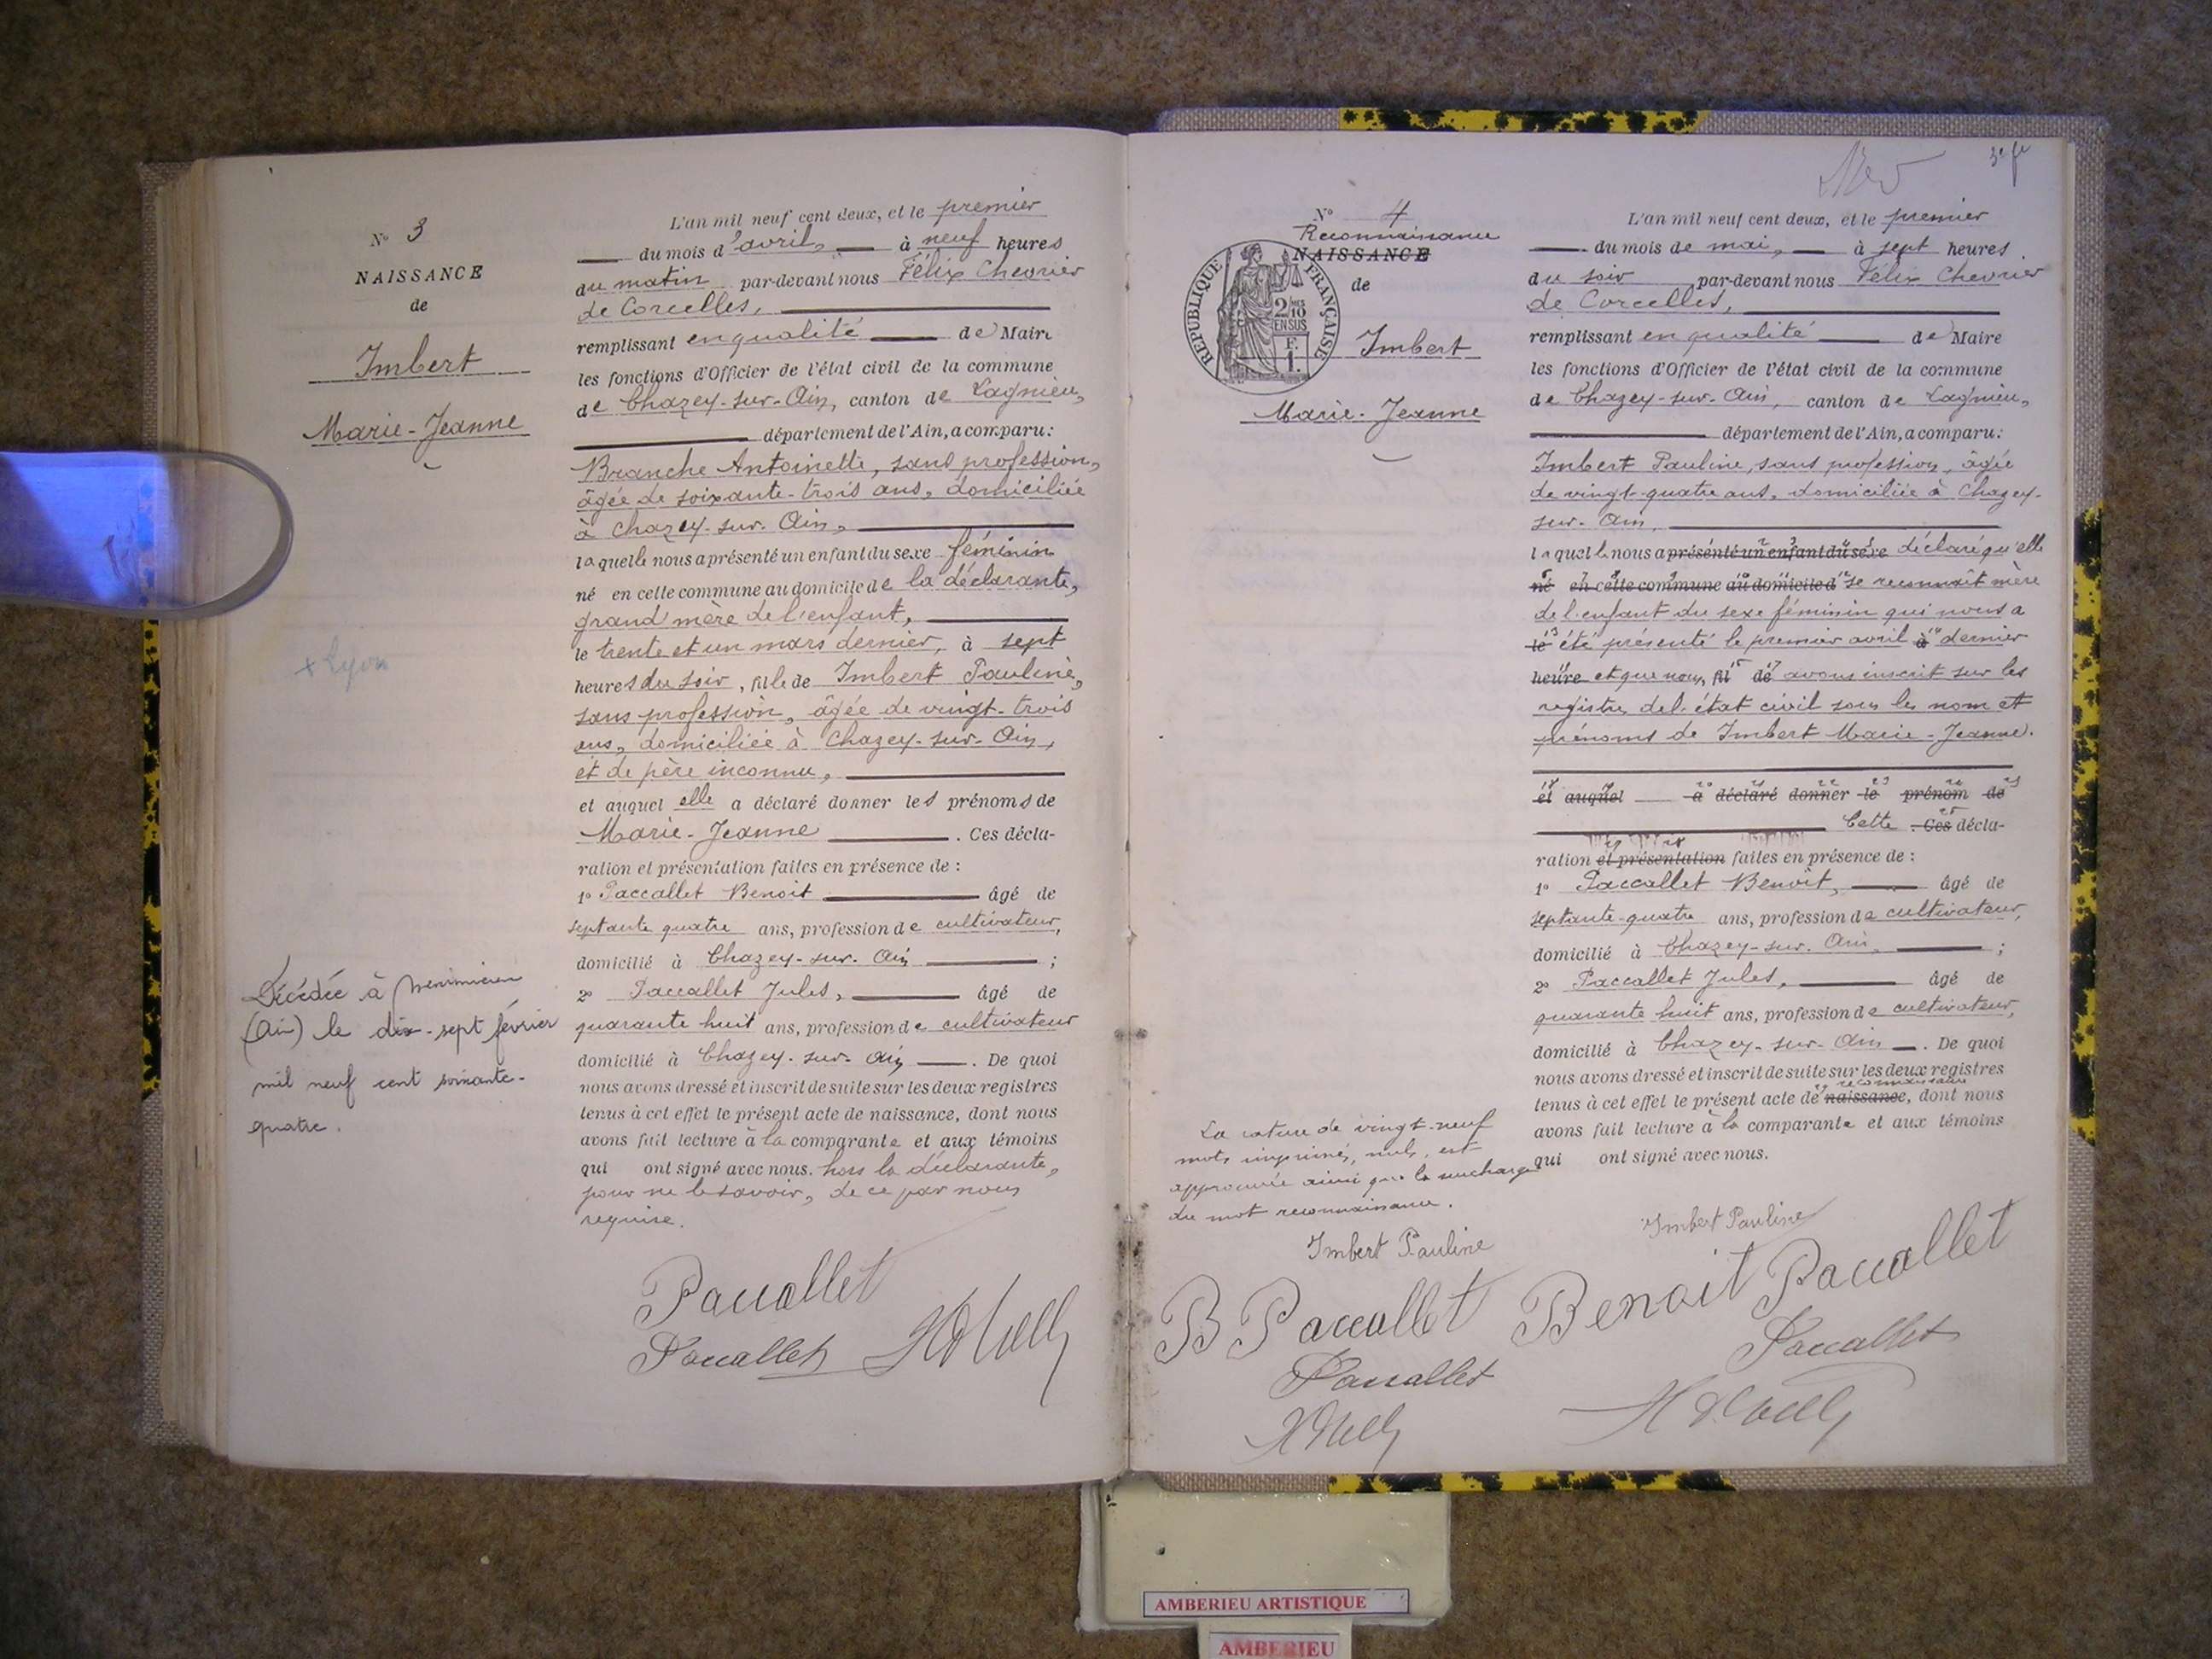 Nº 3
NAISSANCE
de
Imbert
Marie-Jeanne
+ Lyon
Décédée à
(Ain) le dix-sept février
mil neuf cent soixante-
quatre.
L'an mil neuf cent deux, et le premier
du mois d'avril, à neuf heures
du matin par-devant nous Félix Chevrier
de Corcelles,
remplissant en qualité de Maire
les fonctions d'Officier de l'état civil de la commune
de Chazey-sur-Ain, canton de Lagnieu,
département de l'Ain, a comparu:
Branche Antoinette, sans profession,
âgée de soixante-trois ans, domiciliée
à Chazey-sur-Ain,
laquelle nous a présenté un enfant du sexe féminin
né en cette commune au domicile de la déclarante,
grand mère de l'enfant,
le trente et un mars dernier, à sept
heures du soir, fille de Imbert Pauline,
sans profession, âgée de vingt-trois
ans, domiciliée à Chazey-sur-Ain,
et de père inconnu,
et auquel elle a déclaré donner les prénoms de
Marie-Jeanne . Ces décla-
ration et présentation faites en présence de :
1º Paccallet Benoit âgé de
septante quatre ans, profession de cultivateur,
domicilié à Chazey-sur-Ain ;
2º Paccallet Jules, âgé de
quarante huit ans, profession de cultivateur
domicilié à Chazey-sur-Ain . De quoi
nous avons dressé et inscrit de suite sur les deux registres
tenus à cet effet le présent acte de naissance, dont nous
avons fait lecture à la comparante et aux témoins
qui ont signé avec nous. hors la déclarante,
pour ne le savoir, de ce par nous
requise.
Paccallet
Paccallet
3e fe
Nº 4
Reconnaissance
NAISSANCE
de
REPUBLIQUE FRANÇAISE
2/10 MES
EN SUS
F.
1.
Imbert
Marie-Jeanne
L'an mil neuf cent deux, et le premier
du mois de mai, à sept heures
du soir par-devant nous Félix Chevrier
de Corcelles,
remplissant en qualité de Maire
les fonctions d'Officier de l'état civil de la commune
de Chazey-sur-Ain, canton de Lagnieu,
département de l'Ain, a comparu:
Imbert Pauline, sans profession, âgée
de vingt-quatre ans, domiciliée à Chazey-
sur-Ain,
laquelle nous a présenté un enfant du sexe déclaré qu'elle
né en cette commune au domicile d se reconnaît mère
de l'enfant du sexe féminin qui nous a
le été présenté le premier avril à dernier
heure et que nous, fil de avons inscrit sur les
registres de l'état civil sous les nom et
prénoms de Imbert Marie-Jeanne.
et auquel a déclaré donner le prénom de
Cette . Ces décla-
ration et présentation faites en présence de :
1º Paccallet Benoit, âgé de
septante-quatre ans, profession de cultivateur,
domicilié à Chazey-sur-Ain, ;
2º Paccallet Jules, âgé de
quarante huit ans, profession de cultivateur,
domicilié à Chazey-sur-Ain . De quoi
nous avons dressé et inscrit de suite sur les deux registres
reconnaissance
tenus à cet effet le présent acte de naissance, dont nous
avons fait lecture à la comparante et aux témoins
qui ont signé avec nous.
La rature de vingt-neuf
mots imprimés, nuls, est
approuvée ainsi que la surcharge
du mot reconnaissance.
Imbert Pauline
B Paccallet
Paccallet
Imbert Pauline
Benoit Paccallet
Paccallet
AMBERIEU ARTISTIQUE
AMBERIEU